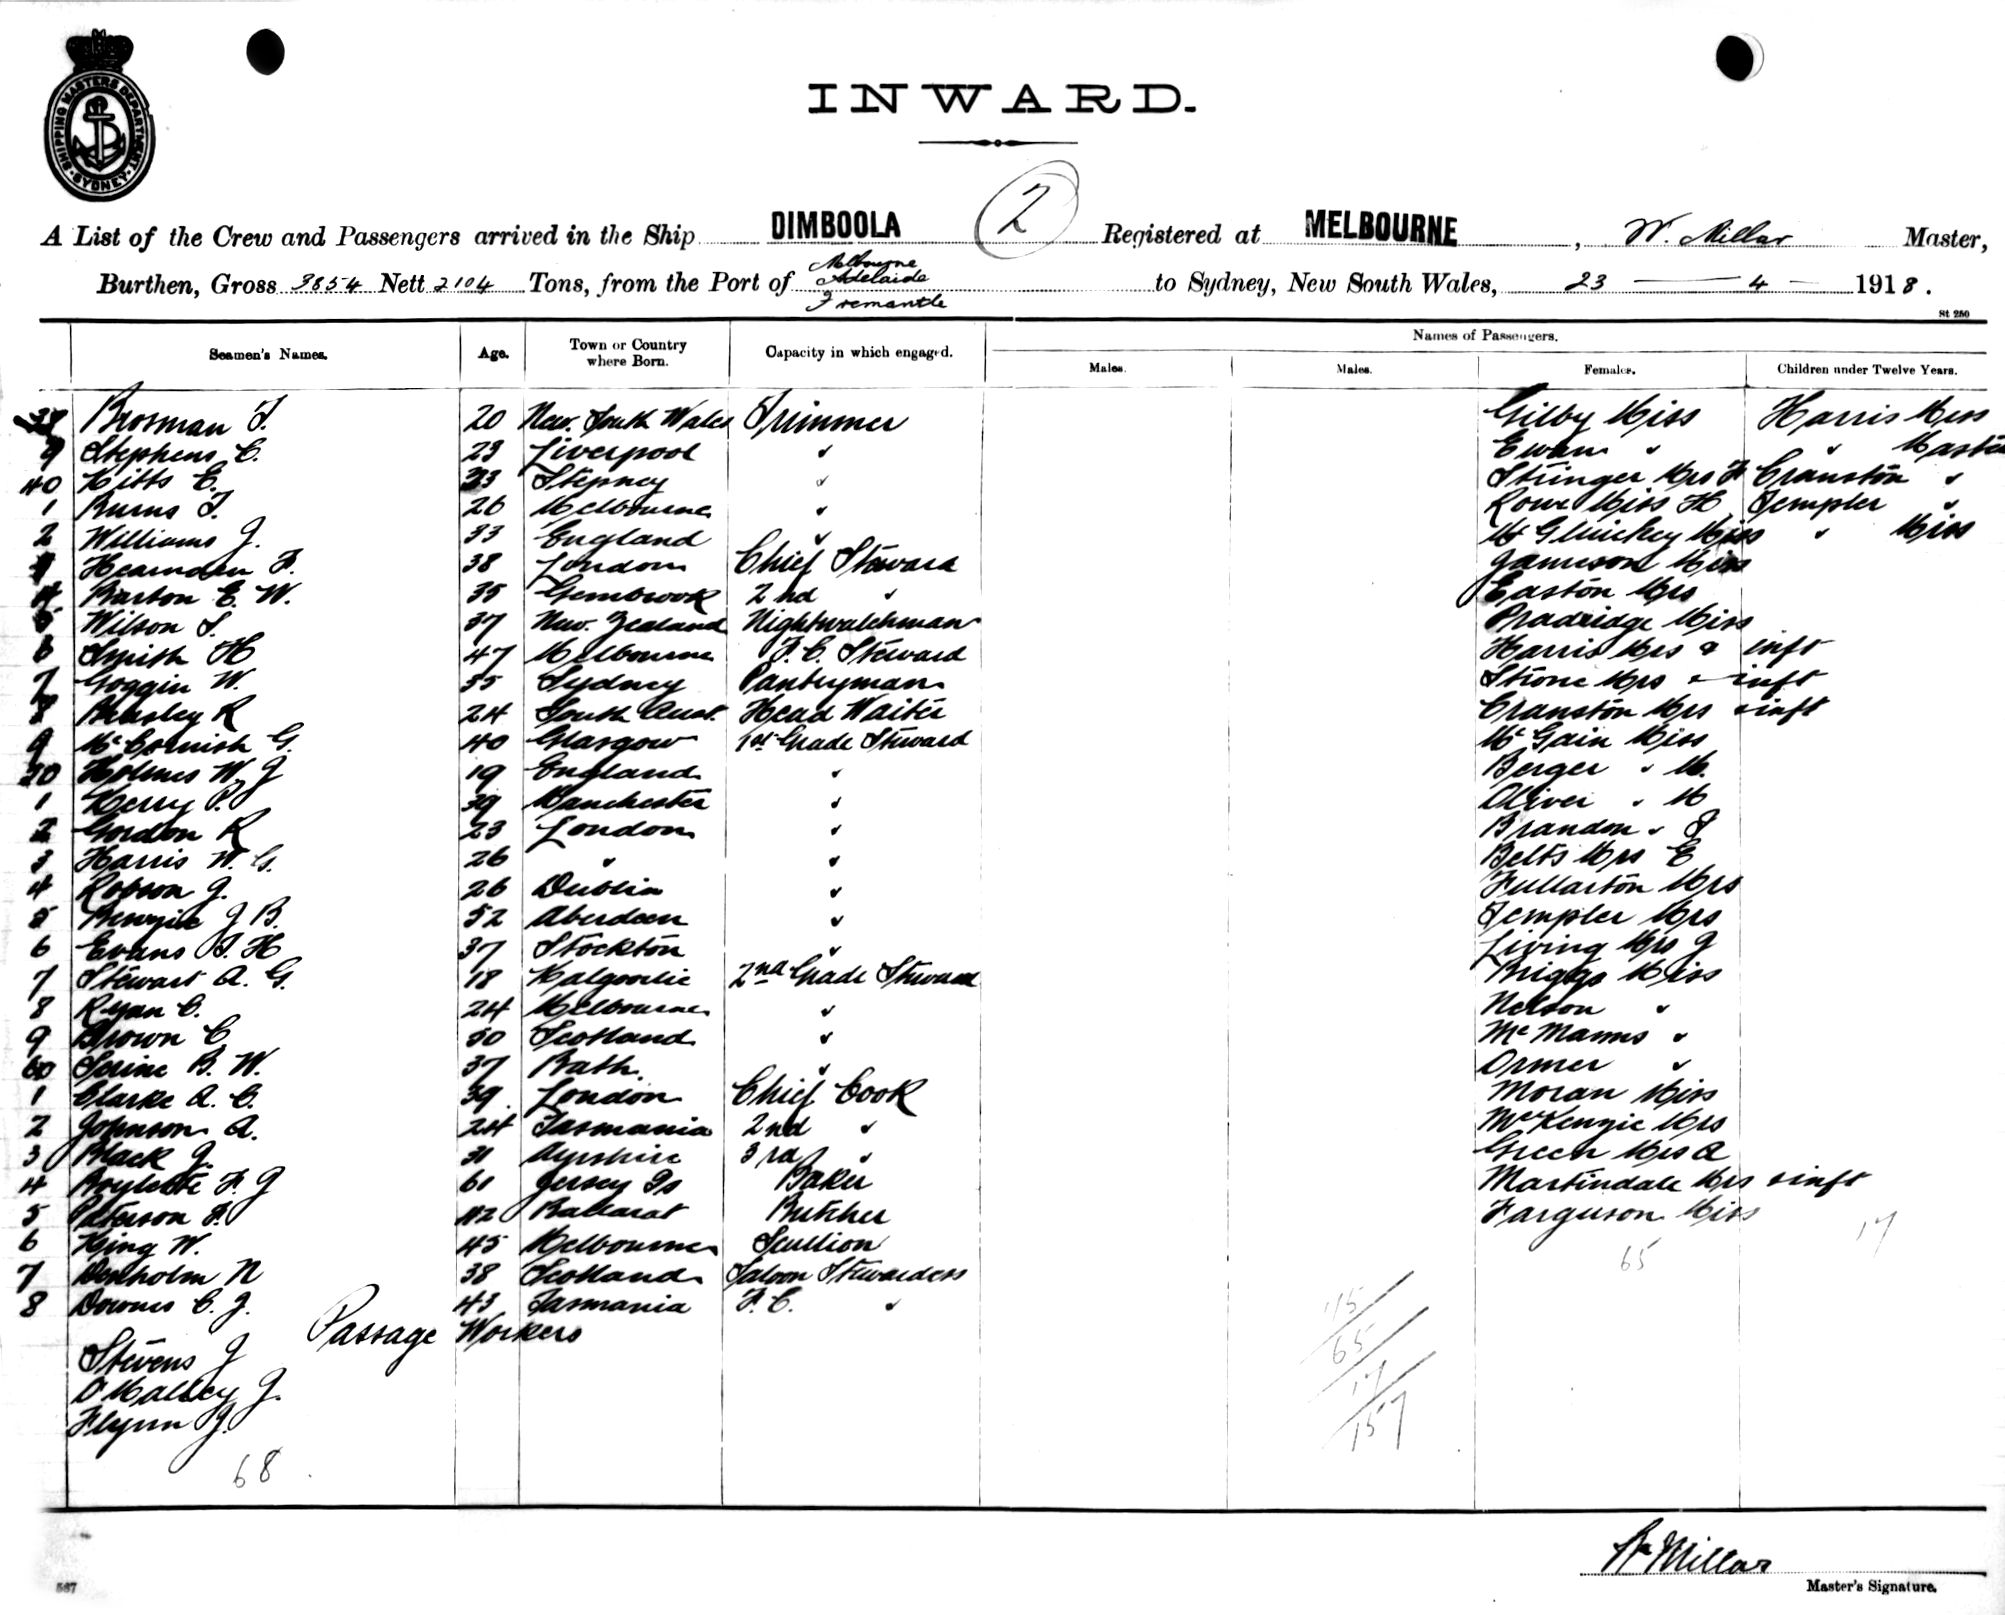 SHIPPING MASTERS DEPARTMENT
SYDNEY
INWARD.
A List of the Crew and Passengers arrived in the Ship DIMBOOLA 2 Registered at MELBOURNE, W. Millar Master,
Burthen, Gross 3854 Nett 2104 Tons, from the Port of Melbourne Adelaide Fremantle to Sydney, New South Wales, 23 — 4 — 1918.
St 250
Seamen's Names. Age. Town or Country where Born. Capacity in which engaged. Names of Passengers.
Males. Males. Females. Children under Twelve Years.
Brosman T. 20 New. South Wales Trimmer Gilby Miss Harris Miss
9 Stephens C. 23 Liverpool " Ewan " "
40 Kitts E. 33 Stepney " Stringer Mrs Cranston "
1 Burns T. 26 Melbourne " Rowe Miss H Templer "
2 Williams J. 33 England " Miss " Miss
Hearnden F. 38 London Chief Steward Jamieson Miss
4 Barton E. W. 35 Gembrook 2nd " Easton Mrs
5 Wilson S. 37 New. Zealand Nightwatchman Miss
6 Smith H 47 Melbourne F. C. Steward Harris Mrs & inft
7 Goggin W. 35 Sydney Pantryman Stone Mrs & inft
8 Beasley R 24 South Aust. Head Waiter Cranston Mrs & inft
9 McCornish G. 40 Glasgow 1st Grade Steward McGain Miss
50 Holmes W. J 19 England " Berger " M.
1 Kerry P. 39 Manchester " Oliver " M
2 Gordon R 23 London " Brandon "
3 Harris W. G. 26 " " Belts Mrs E
4 Robson J. 26 Dublin " Fullarton Mrs
5 J B. 52 Aberdeen " Templer Mrs
6 Evans T. H 37 Stockton " Living Mrs J
7 Stewart A. G. 18 Kalgoorlie 2nd Grade Steward Briggs Miss
8 Ryan C. 24 Melbourne " Nelson "
9 Brown C 50 Scotland " McManus "
60 B. W. 37 Bath. " Ormer "
1 Clarke A. C. 39. London Chief Cook Moran Miss
2 Johnson A. 24 Tasmania 2nd " McKenzie Mrs
3 Black J. 31 Ayrshire 3rd " Green Mrs A
4 F. J 61 Jersey Is Baker Martindale Mrs & inft
5 Paterson F. 42 Ballarat Butcher Farguson Miss
6 King W. 45 Melbourne Scullion 65 17
7 Denholm N 38 Scotland Saloon Stewardess
8 Downes C. J. 43 Tasmania F. C. " 75
Passage Workers 65
Stevens J 17
O'Malley J. 157
Flynn J.
68
W Millar
Master's Signature.
567